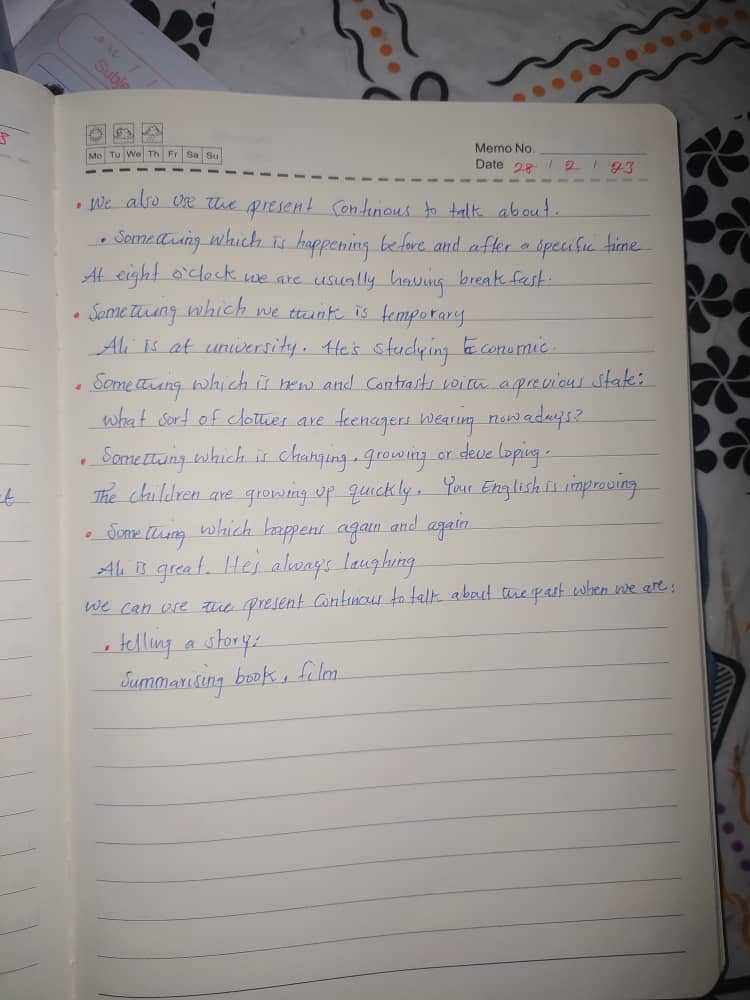 Subje
Mo Tu We Th Fr Sa Su
Memo No.
Date 28 / 2 / 23
• We also use the present Continous to talk about.
• Something which is happening before and after a specific time
At eight o'clock we are usually having breakfast.
• Something which we think is temporary
Ali is at university. He's studying Economic.
• Something which is new and Contrasts with a previous state:
what sort of clothes are teenagers wearing nowadays?
• Something which is changing, growing or developing.
The children are growing up quickly. Your English is improving
• Something which happens again and again
Ali is great. He's always laughing
we can use the present Continous to talk about the past when we are:
• telling a story:
Summarising book, film